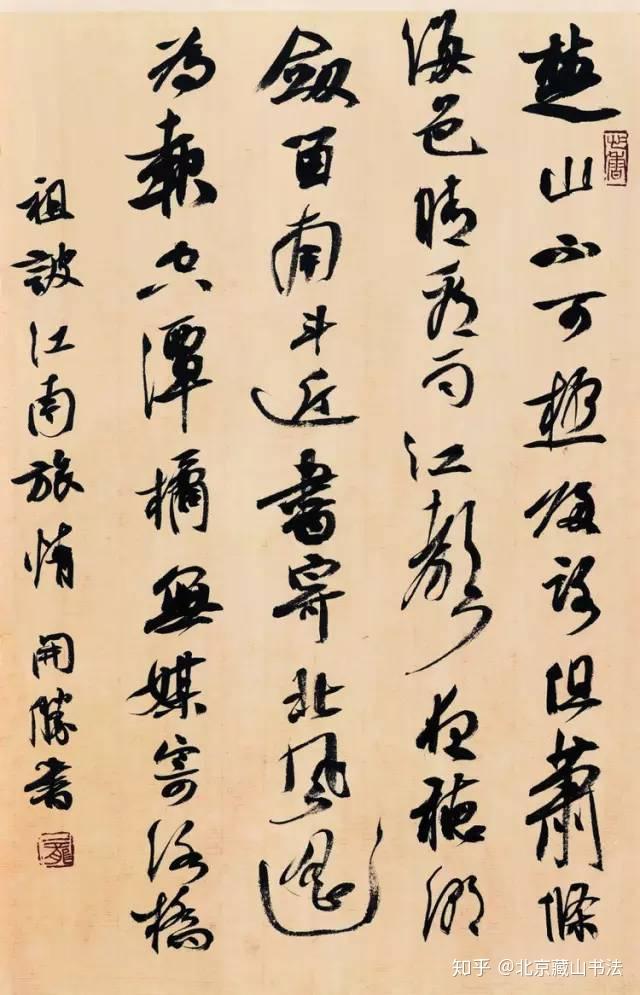 楚山不可極歸路但蕭條
海色晴看雨江聲夜聽潮
劍留南斗近書寄北風遙
為報空潭橘無媒寄洛橋
祖詠江南旅情 開勝書
知乎 @北京藏山书法